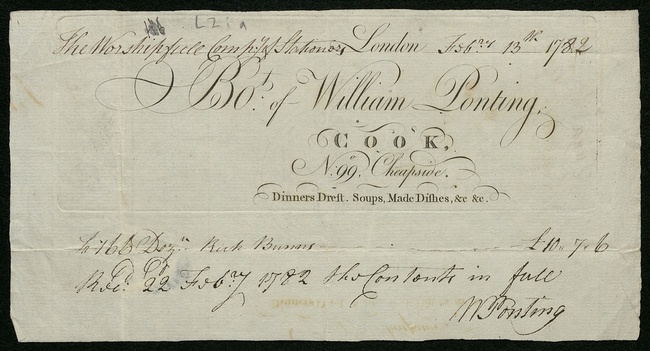 166 L2in
The Worshipfull Compy. of Stationers London Feb.ry 13th 1782
Bot. of William Ponting,
COOK,
No. 99, Cheapside.
Dinners Drest. Soups, Made Dishes, &c &c.
To Doz:n Rich Bunns £10 „ 7 „ 6
Rec:d 22 Feb.ry 1782 the Contents in full
W Ponting